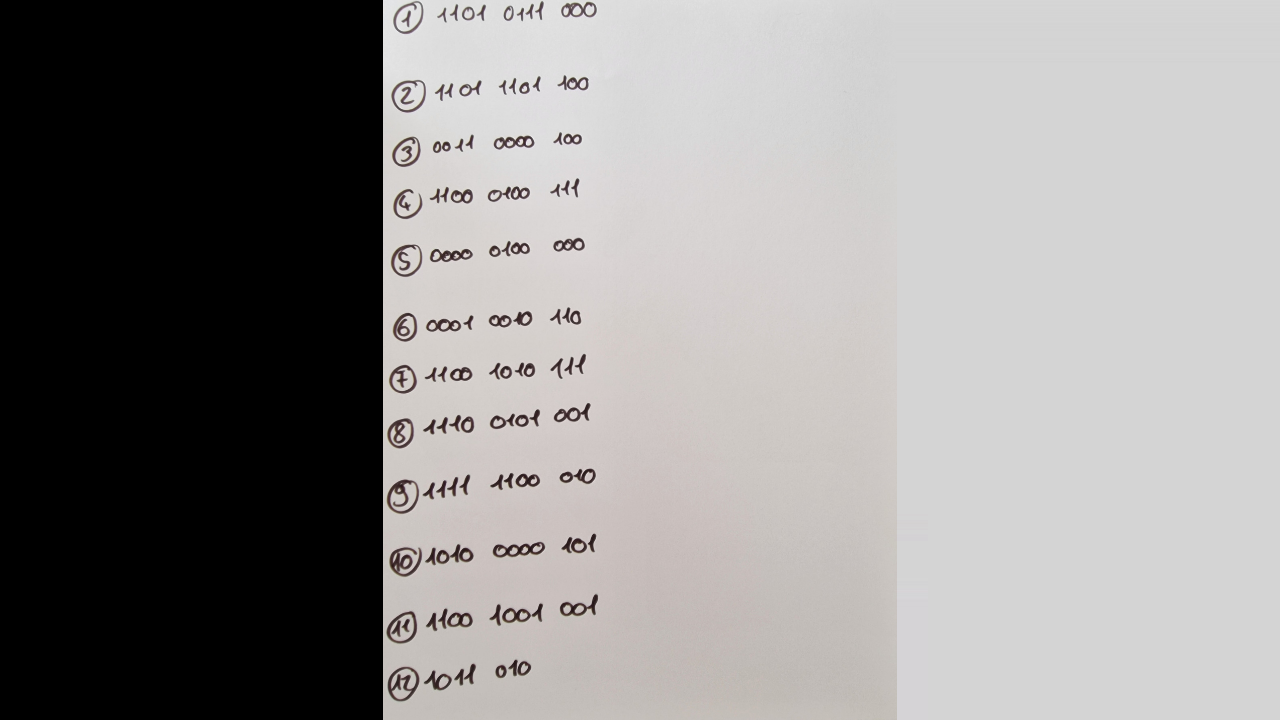 ① 1101 0111 000
② 1101 1101 100
③ 0011 0000 100
④ 1100 0100 111
⑤ 0000 0100 000
⑥ 0001 0010 110
⑦ 1100 1010 111
⑧ 1110 0101 001
⑨ 1111 1100 010
⑩ 1010 0000 101
⑪ 1100 1001 001
⑫ 1011 010